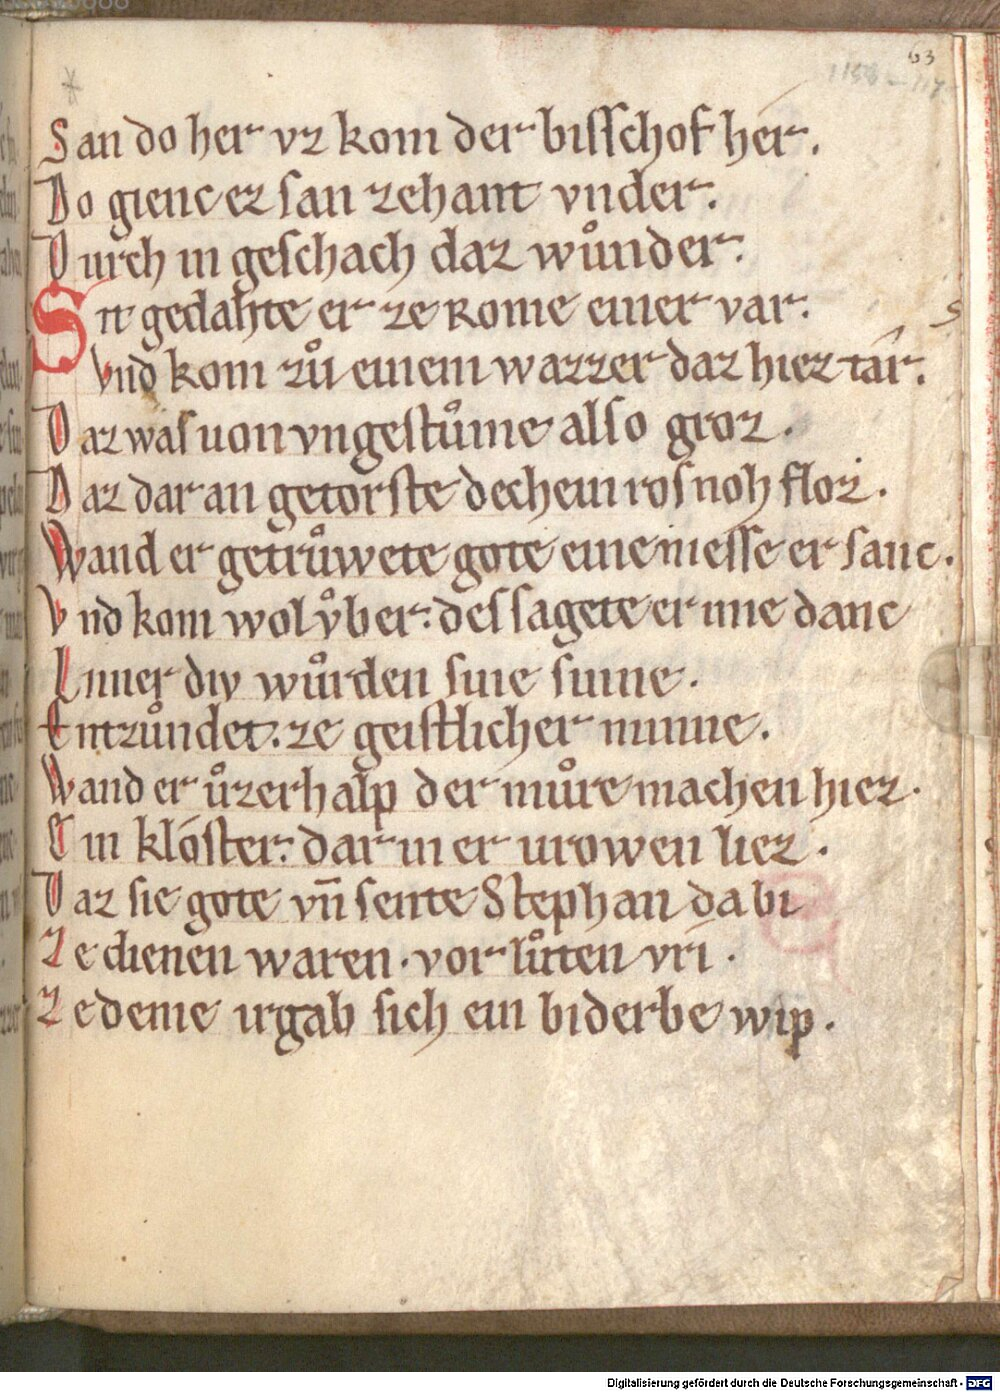 63
San do her vz kom der bisschof her.
Do gienc ez san zehant vnder.
Durch in geschach daz wůnder.
Sit gedahte er ze Rome einer var.
Vnd kom zů einem wazzer daz hiez târ.
Daz was uon vngestůme also groz.
Daz dar an getorste dechein ros noh floz.
Wand er getrůwete gote eine messe er sanc.
Vnd kom wol v̊ber. des sagete er ime danc
Inner div wůrden sine sinne.
Entzůndet. ze geistlicher minne.
Wand er ůzerhalp der můre machen hiez.
Ein klóster. dar in er urowen liez.
Daz sie gote vn̄ sente Stephan da bi
Ze dienen waren. vor lůten vri.
Ze deme irgab sich ein biderbe wip.
Digitalisierung gefördert durch die Deutsche Forschungsgemeinschaft - DFG